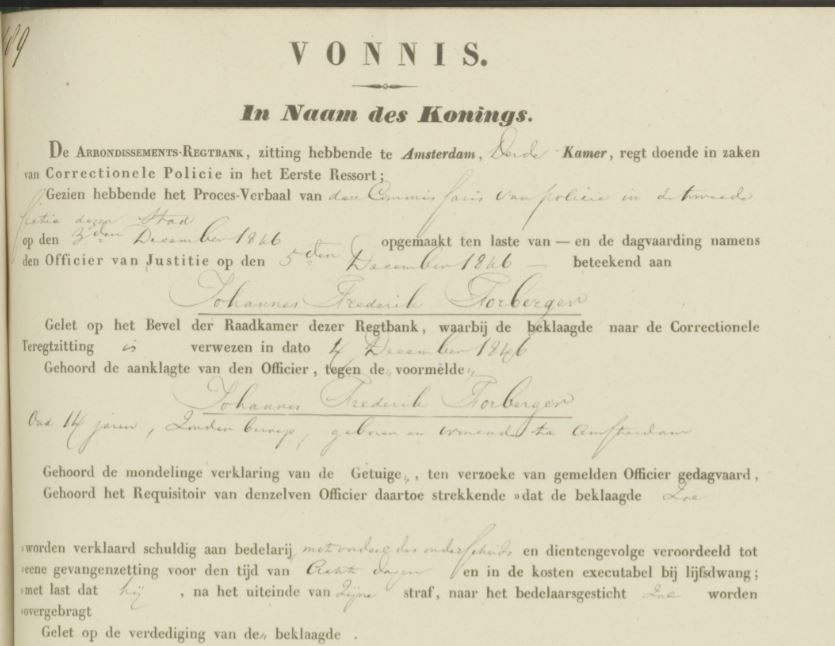 489
VONNIS.
In Naam des Konings.
De ARRONDISSEMENTS-REGTBANK, zitting hebbende te Amsterdam, Derde Kamer, regt doende in zaken
van Correctionele Policie in het Eerste Ressort;
Gezien hebbende het Proces-Verbaal van den Commissaris van policie in de tweede
sectie dezer Stad
op den 3den December 1846 opgemaakt ten laste van — en de dagvaarding namens
den Officier van Justitie op den 5den December 1846 — beteekend aan
Johannes Frederik Florberger
Gelet op het Bevel der Raadkamer dezer Regtbank, waarbij de beklaagde naar de Correctionele
Teregtzitting is verwezen in dato 4 December 1846
Gehoord de aanklagte van den Officier, tegen de„ voormelde„
Johannes Frederik Florberger
Oud 14 jaren, Zonder beroep, geboren en wonende te Amsterdam
Gehoord de mondelinge verklaring van de Getuige„, ten verzoeke van gemelden Officier gedagvaard,
Gehoord het Requisitoir van denzelven Officier daartoe strekkende »dat de beklaagde Zoe
»worden verklaard schuldig aan bedelarij met oordeel des onderscheids en dientengevolge veroordeeld tot
»eene gevangenzetting voor den tijd van Achte dagen en in de kosten executabel bij lijfsdwang;
»met last dat hij, na het uiteinde van Zijne straf, naar het bedelaarsgesticht Zoe worden
»overgebragt
Gelet op de verdediging van de„ beklaagde.